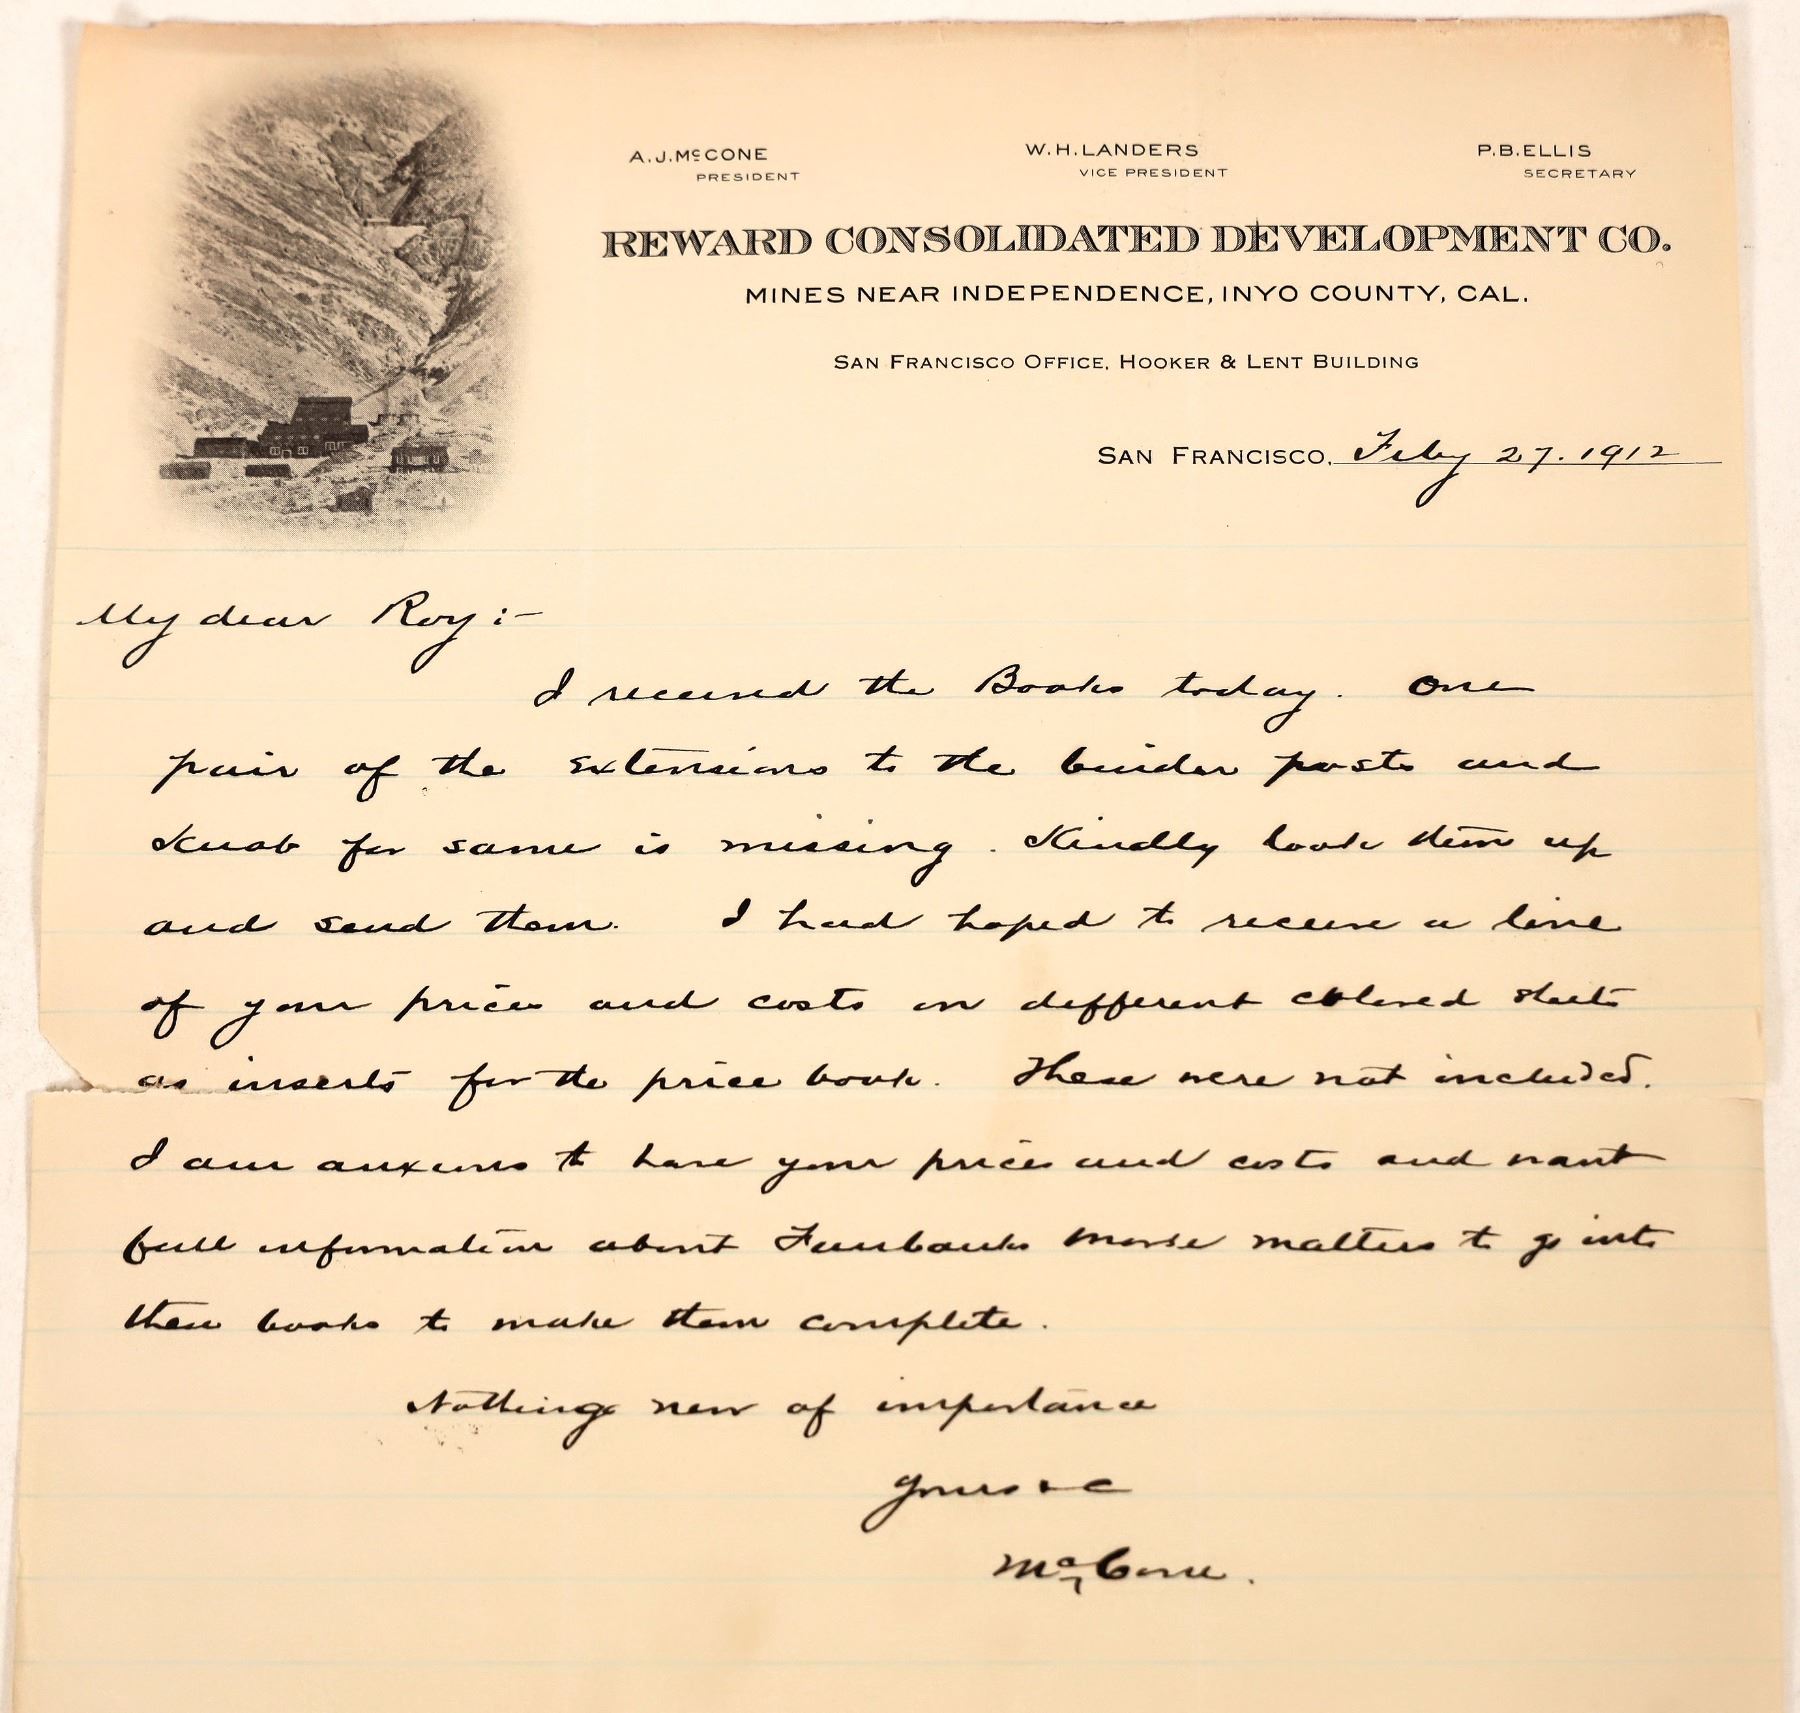 A.J. McCONE W.H. LANDERS P.B. ELLIS
PRESIDENT VICE PRESIDENT SECRETARY
REWARD CONSOLIDATED DEVELOPMENT CO.
MINES NEAR INDEPENDENCE, INYO COUNTY, CAL.
SAN FRANCISCO OFFICE, HOOKER & LENT BUILDING
SAN FRANCISCO, Feby 27. 1912
My dear Roy:-
I received the Books today. One
pair of the extensions to the binder posts and
Knob for same is missing. Kindly look them up
and send them. I had hoped to receive a line
of your prices and costs on different colored sheets
as inserts for the price book. These were not included.
I am anxious to have your prices and costs and want
full information about Fairbanks Morse matters to go into
these books to make them complete.
Nothing new of importance
Yours &c
McCone.